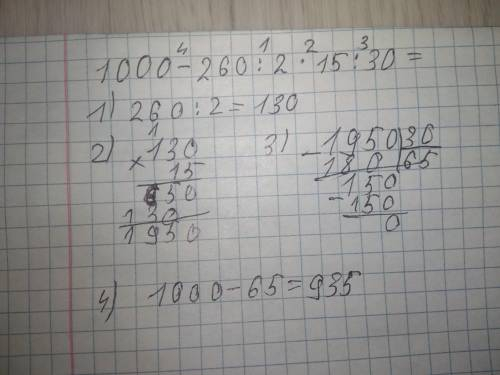 4 1 2 3
1000-260:2·15:30=
1) 260:2=130
2) 1 130 × 15 650 130 1950
3) - 1950 30 180 65 150 - 150 0
4) 1000-65=935